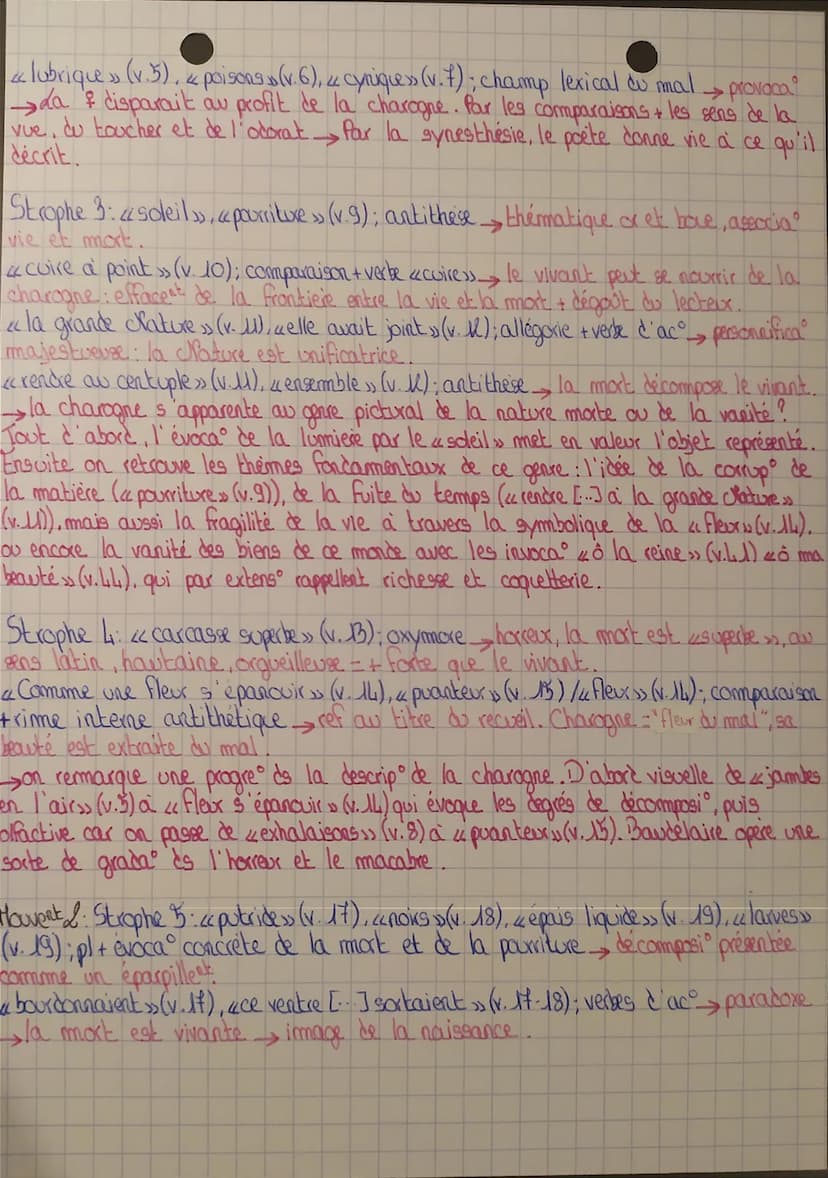 « lubrique » (v.5), « poisons » (v.6), « cynique » (v.7) ; champ lexical du mal → provocaº
→ La ♀ disparait au profit de la charogne. Par les comparaisons + les sens de la
vue, du toucher et de l'odorat → Par la synesthésie, le poète donne vie à ce qu'il
décrit.
Strophe 3 : « soleil », « pourriture » (v.9) ; antithèse → thématique or et boue, associaº
vie et mort.
« cuire à point » (v.10) ; comparaison + verbe « cuire » → le vivant peut se nourrir de la
charogne : effaceᵉⁿᵗ de la frontière entre la vie et la mort + dégoût du lecteur.
« la grande Nature » (v.11), « elle avait joint » (v.12) ; allégorie + verbe d'acº → personnificaº
majestueuse : la Nature est unificatrice.
« rendre au centuple » (v.11), « ensemble » (v.12) ; antithèse → la mort décompose le vivant.
→ la charogne s'apparente au genre pictural de la nature morte ou de la vanité ?
Tout d'abord, l'évocaº de la lumière par le « soleil » met en valeur l'objet représenté.
Ensuite on retrouve les thèmes fondamentaux de ce genre : l'idée de la corrupº de
la matière (« pourriture » (v.9)), de la fuite du temps (« rendre [...] à la grande Nature »
(v.11)), mais aussi la fragilité de la vie à travers la symbolique de la « fleur » (v.14),
ou encore la vanité des biens de ce monde avec les invocaº « ô la reine » (v.41) « ô ma
beauté » (v.44), qui par extensº rappellent richesse et coquetterie.
Strophe 4 : « carcasse superbe » (v.13) ; oxymore → horreur, la mort est « superbe », au
sens latin, hautaine, orgueilleuse = + forte que le vivant.
« Comme une fleur s'épanouir » (v.14), « puanteur » (v.15) / « fleur » (v.14) ; comparaison
+ rime interne antithétique → ref au titre du recueil. Charogne = "fleur du mal", sa
beauté est extraite du mal.
→ on remarque une progreº ds la descripº de la charogne. D'abord visuelle de « jambes
en l'air » (v.5) à « fleur s'épanouir » (v.14) qui évoque les degrés de décomposiº, puis
olfactive car on passe de « exhalaisons » (v.8) à « puanteur » (v.15). Baudelaire opère une
sorte de gradaº ds l'horreur et le macabre.
Mouvent 2 : Strophe 5 : « putride » (v.17), « noirs » (v.18), « épais liquide » (v.19), « larves »
(v.19) ; pl + évocaº concrète de la mort et de la pourriture → décomposiº présentée
comme un éparpilleᵉⁿᵗ.
« bourdonnaient » (v.17), « ce ventre [...] sortaient » (v.17-18) ; verbes d'acº → paradoxe
→ la mort est vivante → image de la naissance.